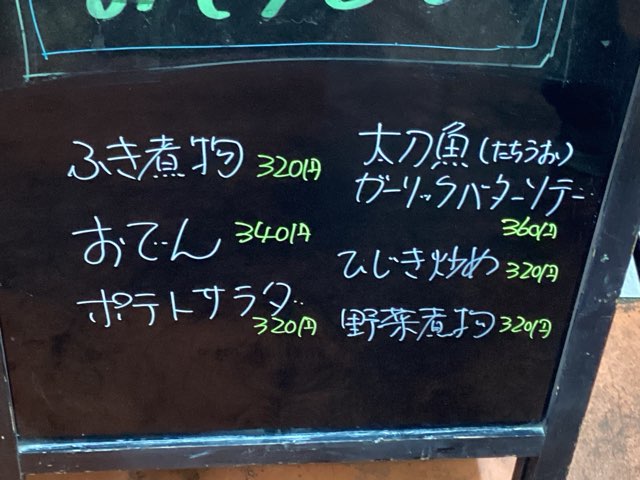 ふき煮物 320円
おでん 340円
ポテトサラダ
320円
太刀魚(たちうお)
ガーリックバターソテー
360円
ひじき炒め 320円
野菜煮物 320円